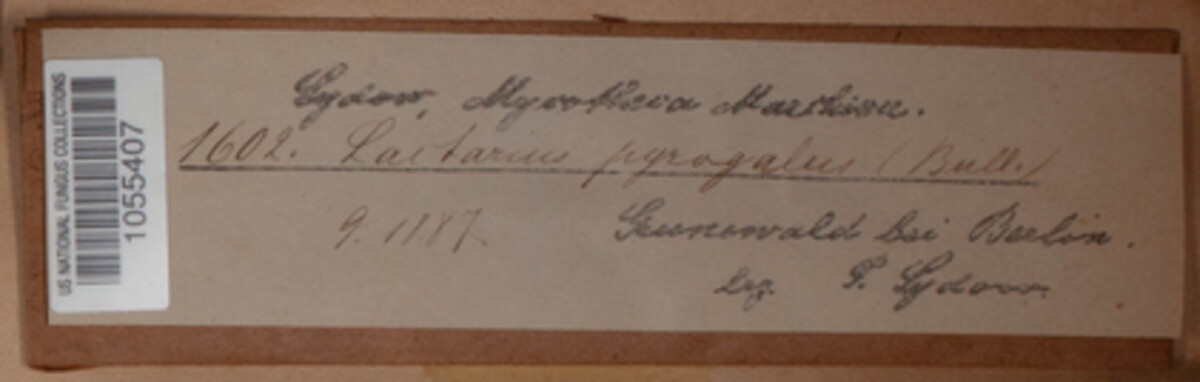 US NATIONAL FUNGUS COLLECTIONS
1055407
Sydow, Mycotheca Marchica.
1602. Lactarius pyrogalus (Bull.)
9. 1887. Grunewald bei Berlin.
Leg. P. Sydow.